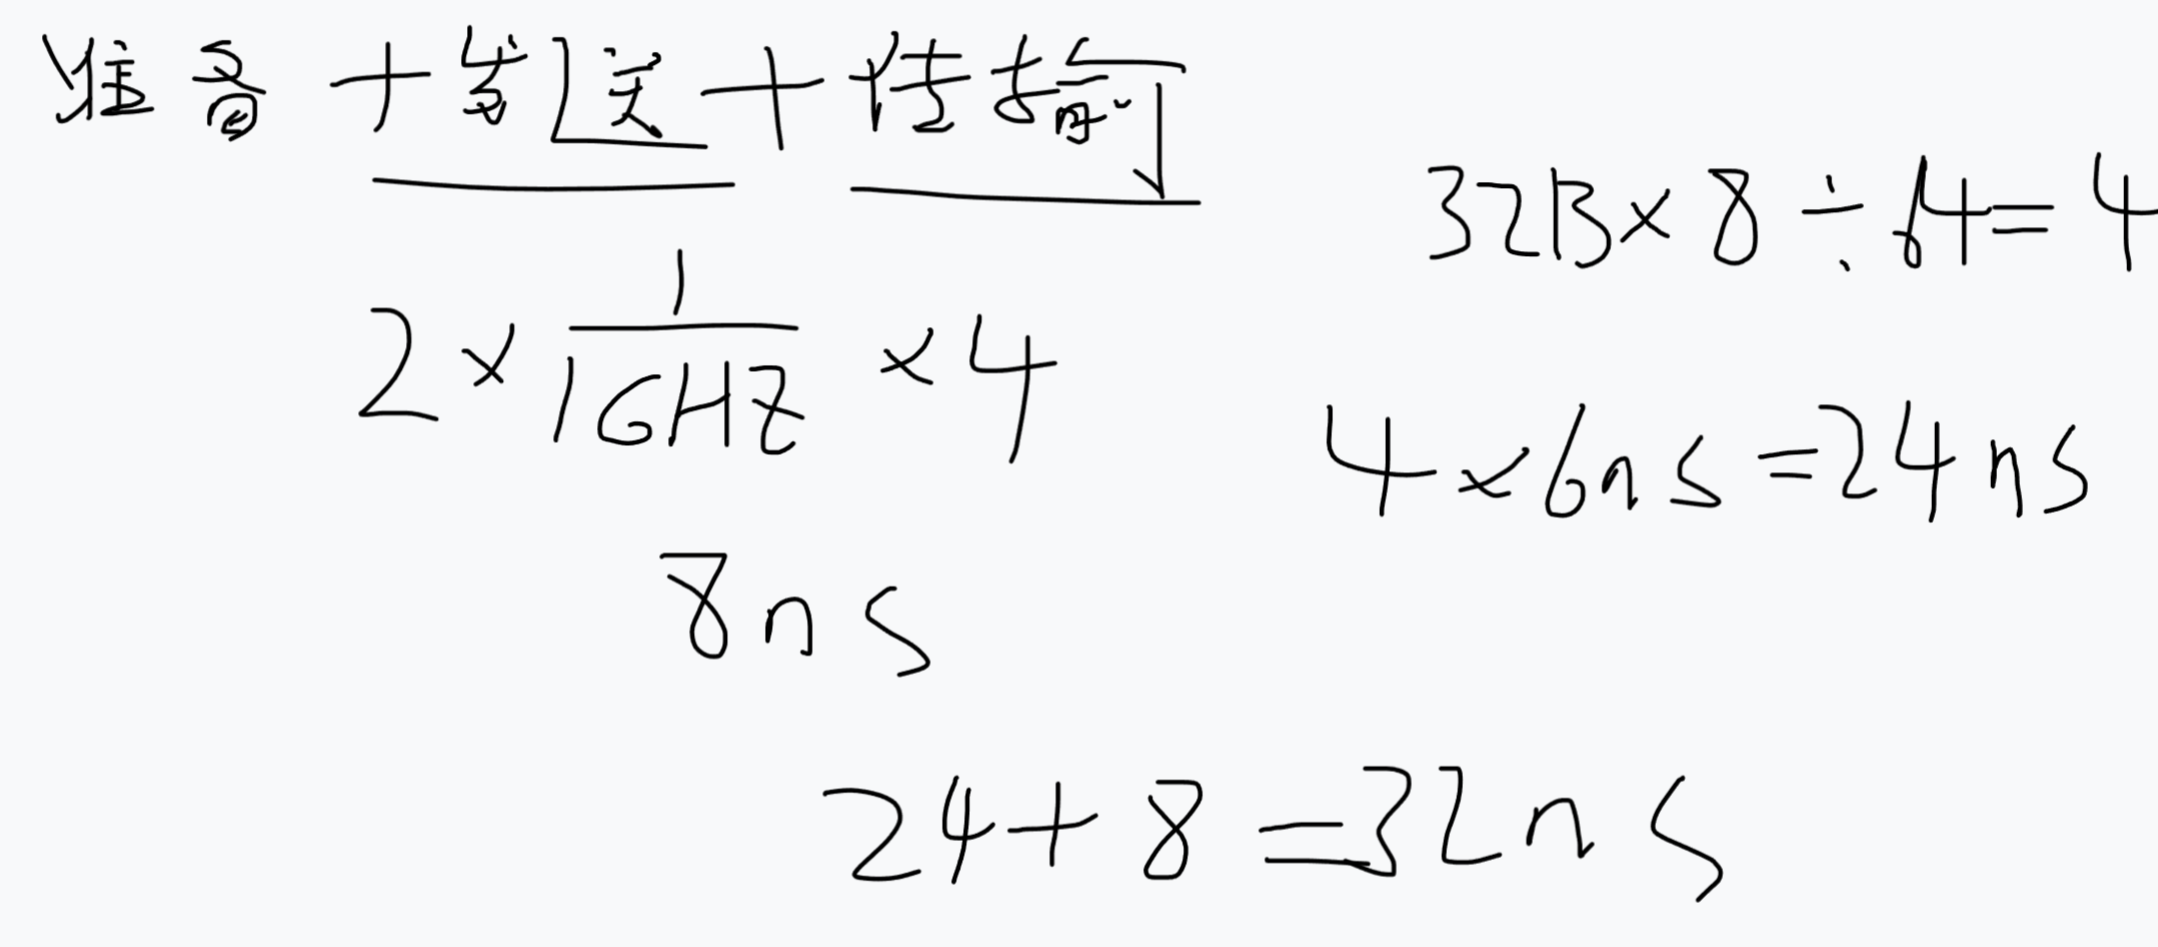 准备+发送+传输
32B×8÷64=4
2×1/1GHZ×4
4×6ns=24ns
8ns
24+8=32ns